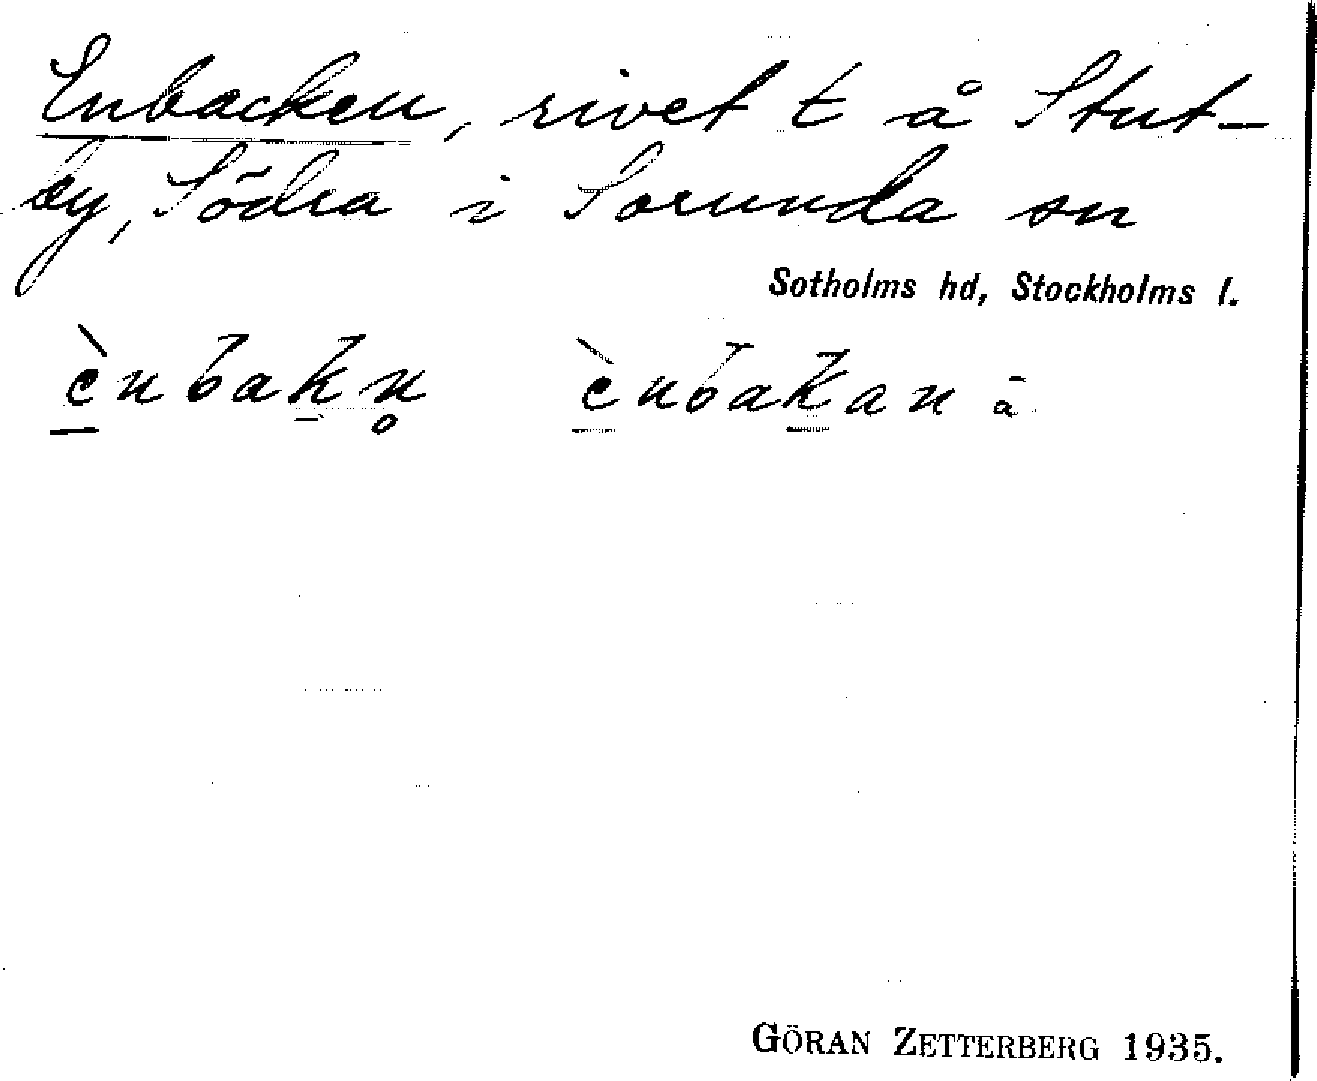 Enbacken, rivet t å Stut-
by, Södra i Sorunda sn
Sotholms hd, Stockholms l.
è̱nbaḵn̥ è̱nbaḵan ā
GÖRAN ZETTERBERG 1935.